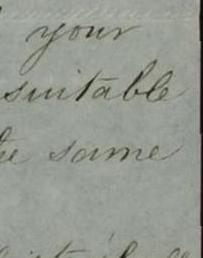 your
suitable
the same